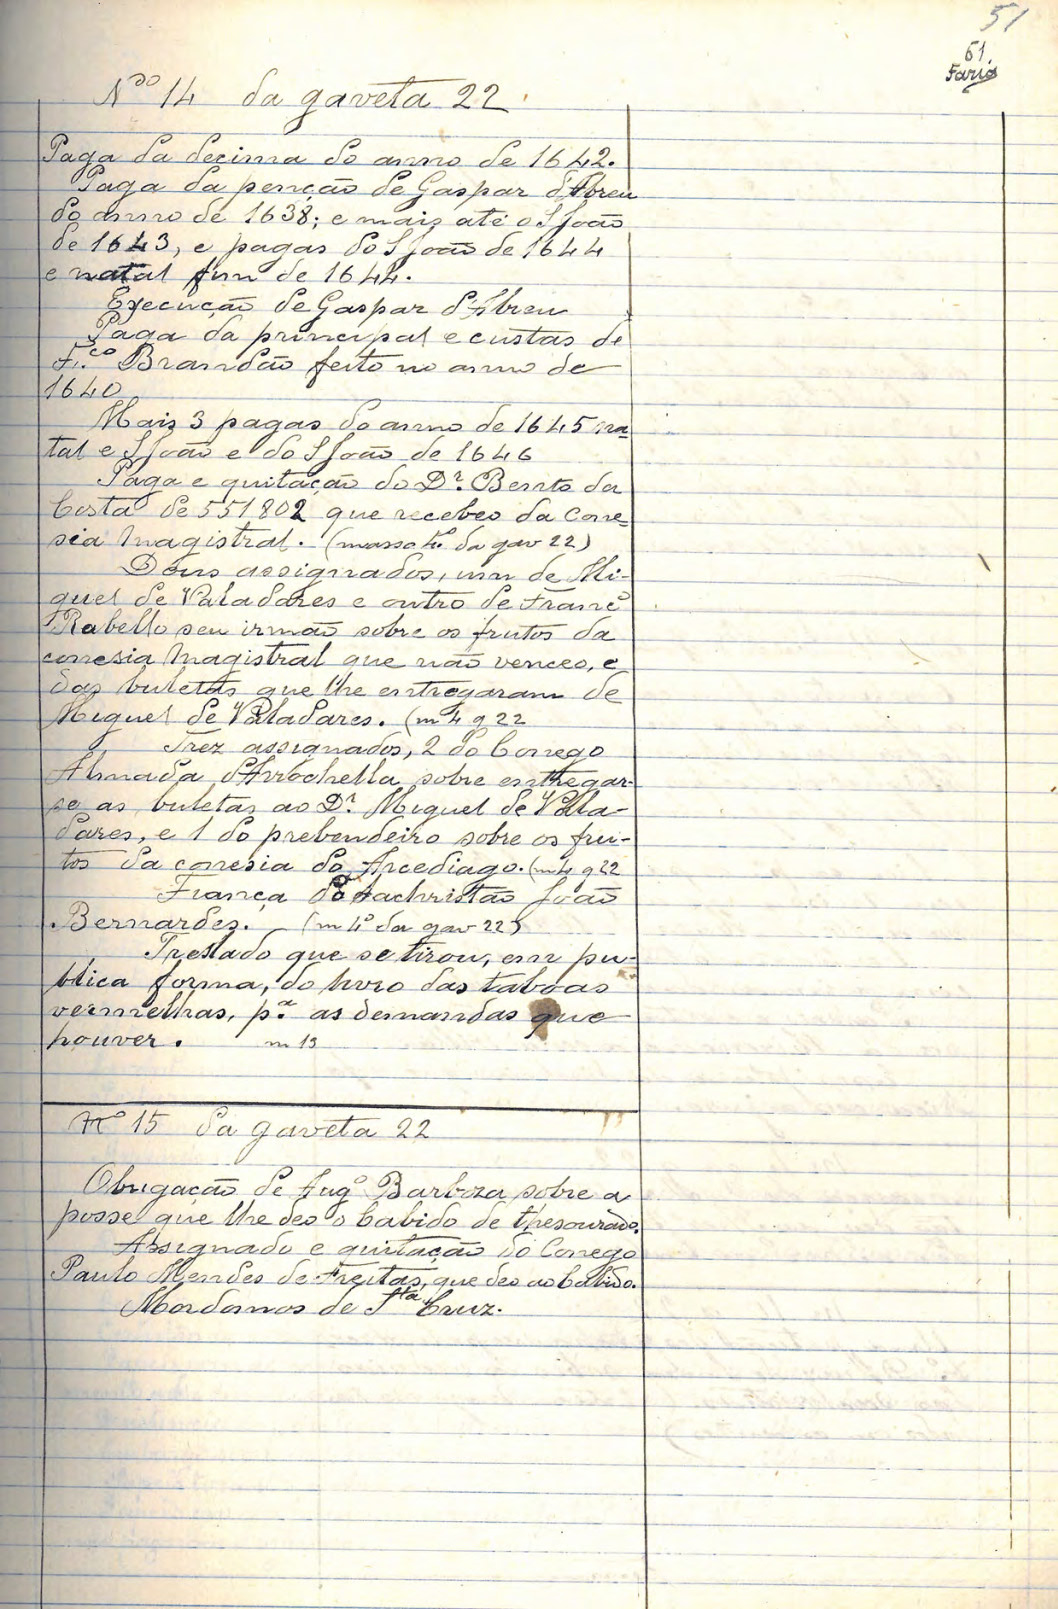 51
61.
Faria
Nº 14 da gaveta 22.
Paga da decima do anno de 1642.
Paga da penção de Gaspar d'Abreu
do anno de 1638; e mais até o S João
de 1643, e pagas do S João de 1644
e natal fim de 1644.
Execução de Gaspar d'Abreu
Paga da principal e custas de
Fr.co Brandão feito no anno de
1640
Mais 3 pagas do anno de 1645 na=
tal e S João e do S João de 1646
Paga e quitação do Dr. Bento da
Costa de 551802 que recebeo da cone=
sia Magistral. (masso 4º da gav 22)
Dous assignados, um de Mi-
guel de Valadares e outro de Francº
Rabello seu irmão sobre os frutos da
conesia Magistral que não venceo, e
das buletas que lhe entregaram de
Miguel de Valadares. (m 4 g 22
Trez assignados, 2 do Conego
Almada d'Arrochella sobre entregar-
se as buletas ao Dr. Miguel de Vala-
dares, e 1 do prebendeiro sobre os fru-
tos da conesia do Arcediago. (m 4 g 22
Fiança do sachristão João
Bernardes. (m 4º da gav 22)
Treslado que se tirou, em pu-
blica forma, do livro das taboas
vermelhas, p.a as demandas que
houver. m 13
Nº 15 da gaveta 22
Obrigação de Aug.º Barboza sobre a
posse que lhe deo o Cabido de thesourado.
Assignado e quitação do Conego
Paulo Mendes de Freitas, que deo ao Cabido.
Mordomos de S.ta Cruz.